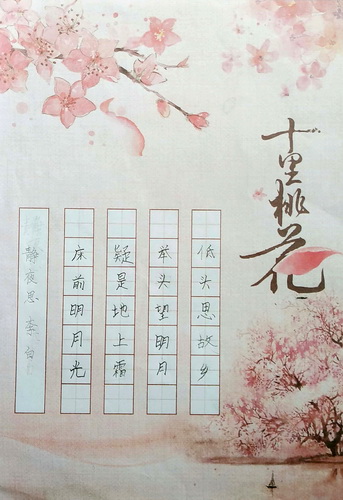 静夜思 李白
床前明月光
疑是地上霜
举头望明月
低头思故乡
十里桃花